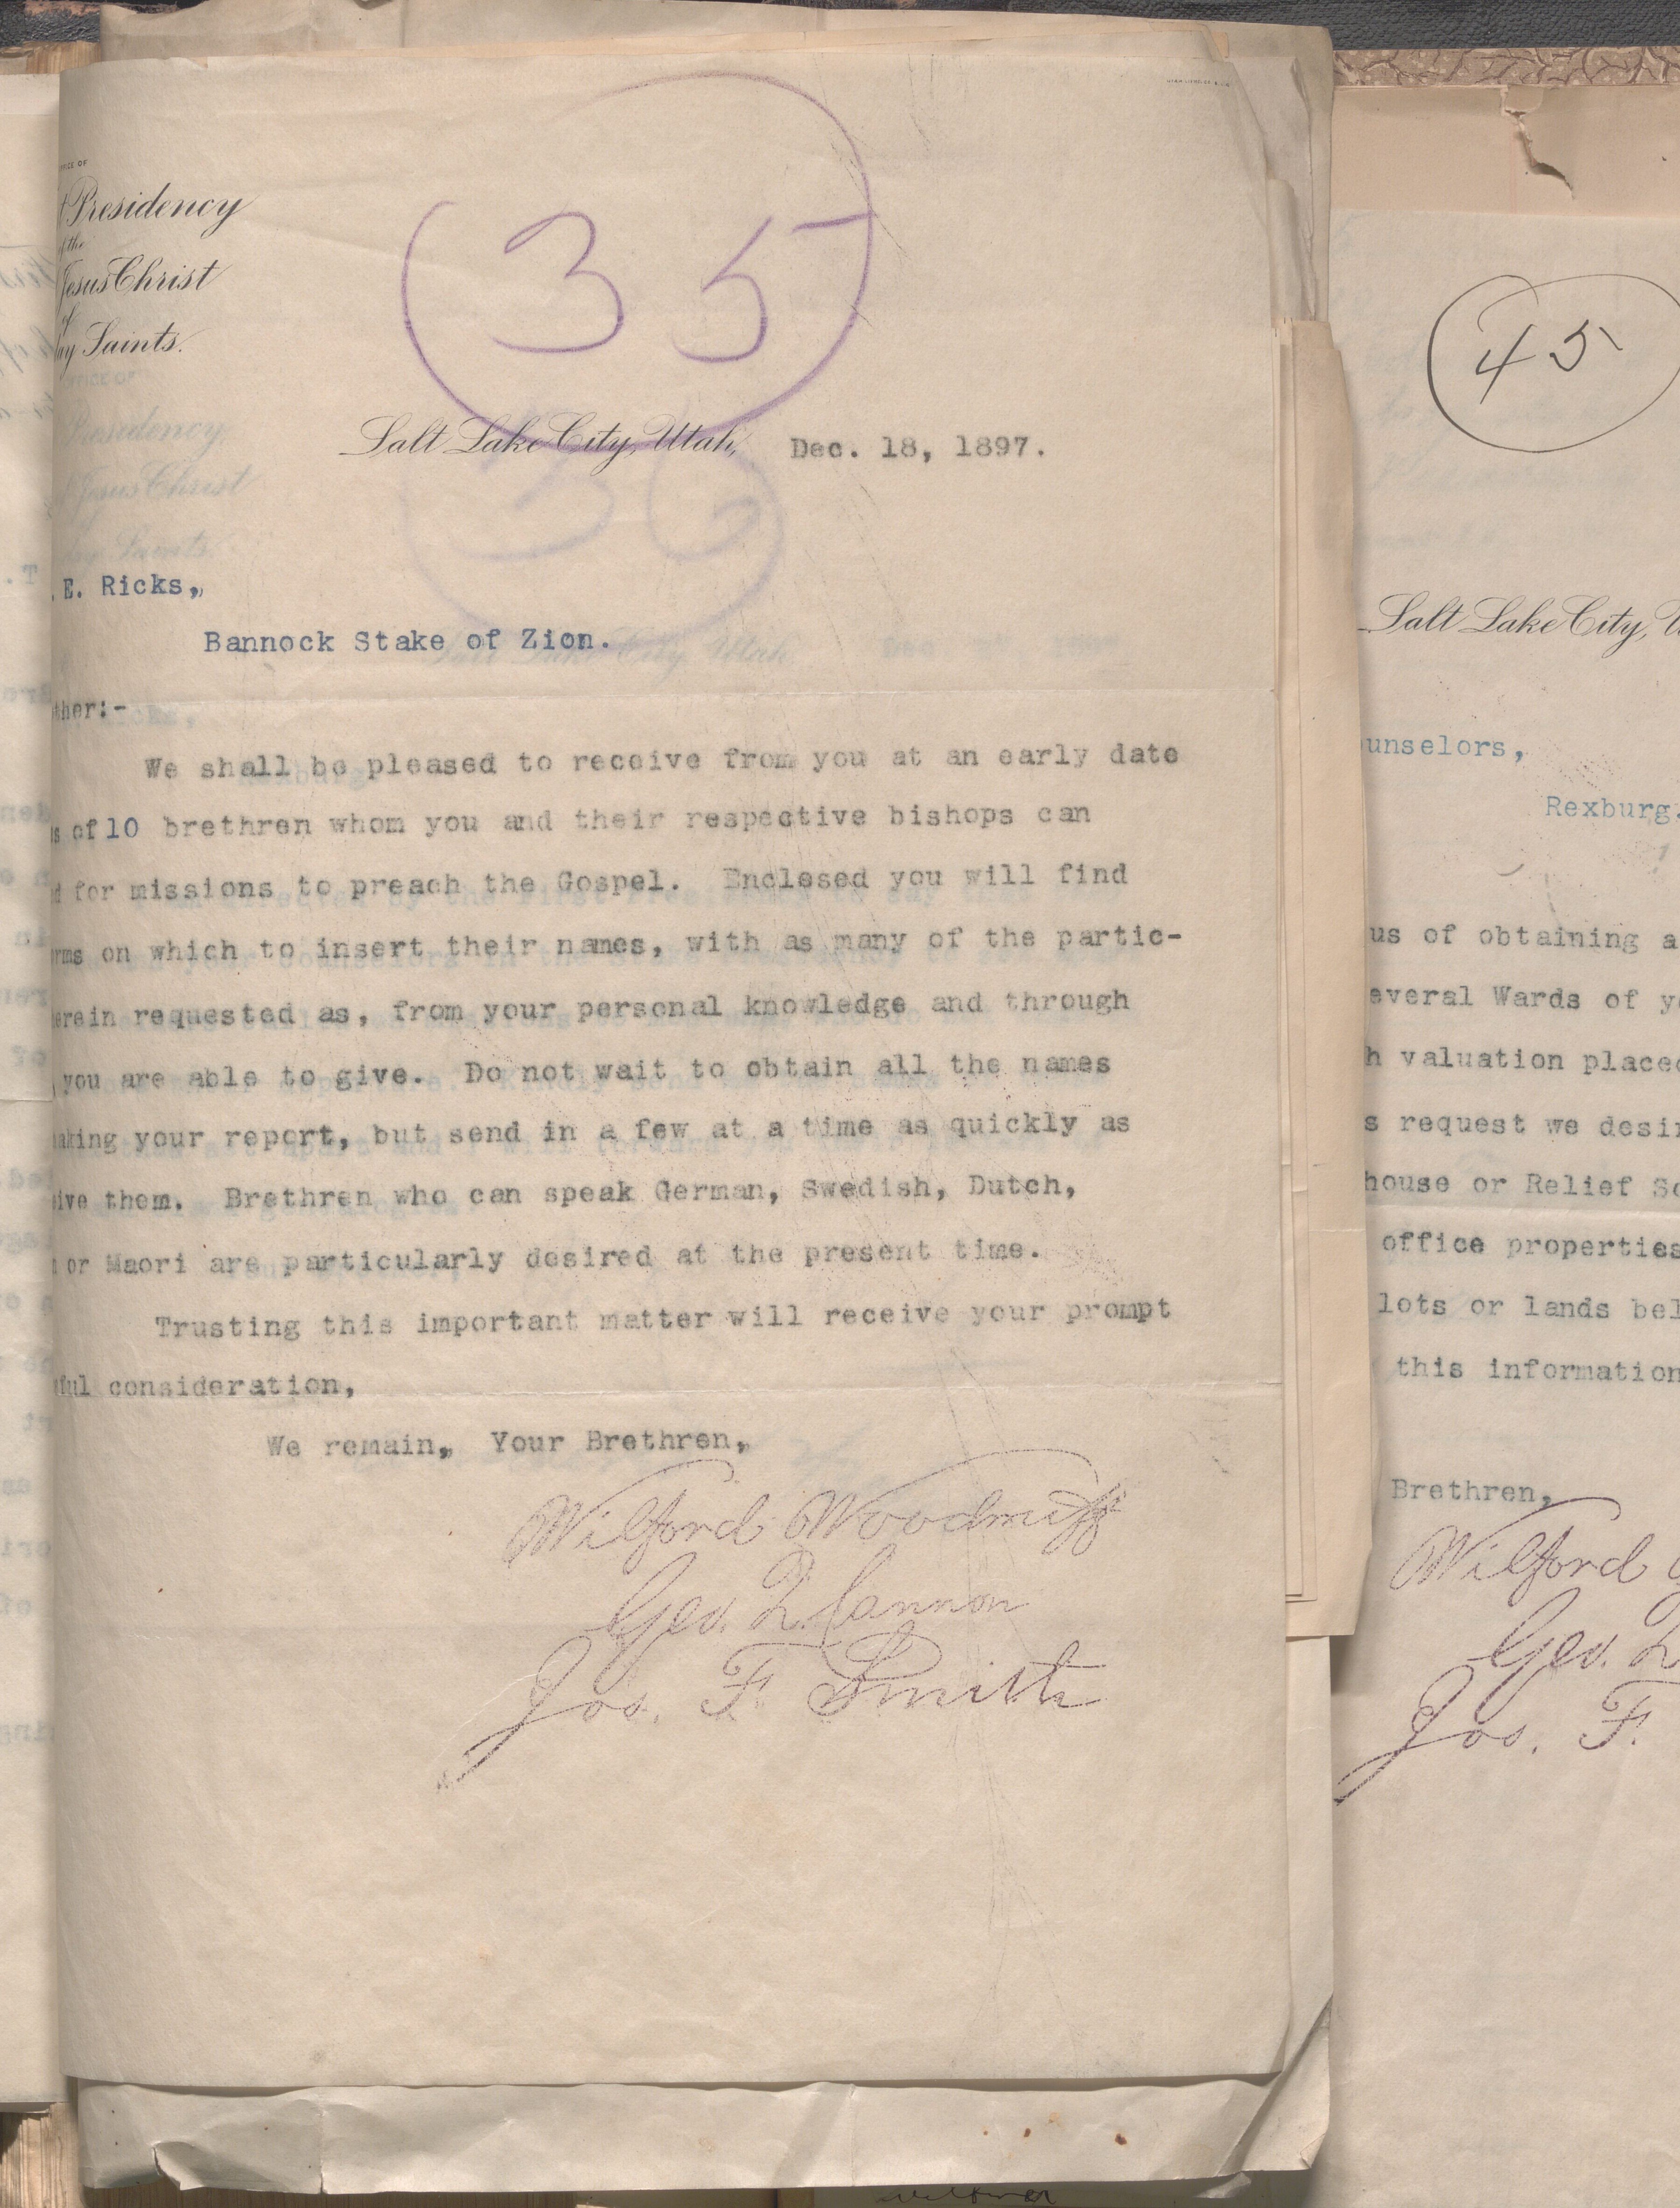 OFFICE OF
Presidency
of the
Jesus Christ
of
ay Saints.
35
Salt Lake City, Utah, Dec. 18, 1897.
. E. Ricks,,
Bannock Stake of Zion.
ther:-
We shall be pleased to receive from you at an early date
s of 10 brethren whom you and their respective bishops can
d for missions to preach the Gospel. Enclosed you will find
rms on which to insert their names, with as many of the partic-
erein requested as, from your personal knowledge and through
you are able to give. Do not wait to obtain all the names
aking your report, but send in a few at a time as quickly as
eive them. Brethren who can speak German, Swedish, Dutch,
n or Maori are particularly desired at the present time.
Trusting this important matter will receive your prompt
ful consideration,
We remain, Your Brethren,
Wilford Woodruff
Geo. Q. Cannon
Jos. F. Smith
45
Salt Lake City, U
unselors,
Rexburg.
us of obtaining a
everal Wards of y
h valuation place
s request we desir
house or Relief So
office properties
lots or lands bel
this information
Brethren,
Wilford
Geo. Q
Jos. F.